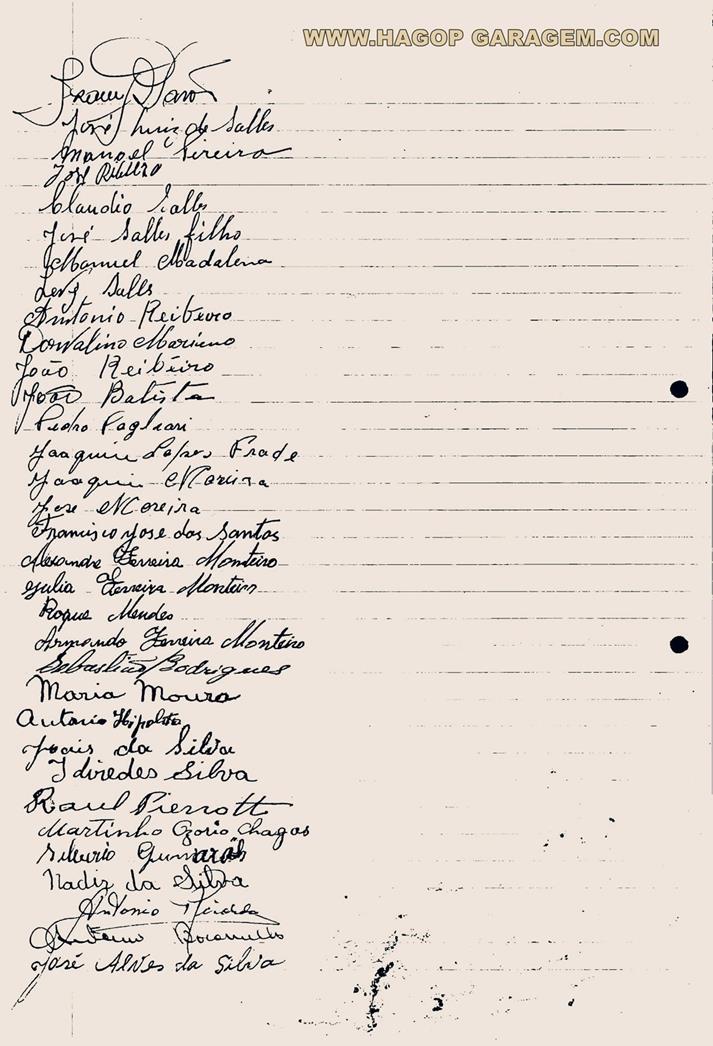 WWW.HAGOP GARAGEM.COM
José Luiz de Salles
Manoel Pireira
José Ribeiro
Claudio Salles
José Salles filho
Manuel Madalena
Levy Salles
Antonio Reibeiro
Dorvalino Mariano
João Reibeiro
João Batista
Pedro Pagliari
Joaquim Lopes Prade
Joaquim Moreira
Jose Moreira
Francisco Jose dos Santos
Alexandre Ferreira Monteiro
Julia Ferreira Monteiro
Roque Mendes
Armando Ferreira Monteiro
Sebastião Rodrigues
Maria Moura
Antonio Hipolito
da Silva
Idiredes Silva
Raul Pierrotti
Martinho Ozorio Chagas
Silverio
Nadiz da Silva
Antonio
José Alves da Silva